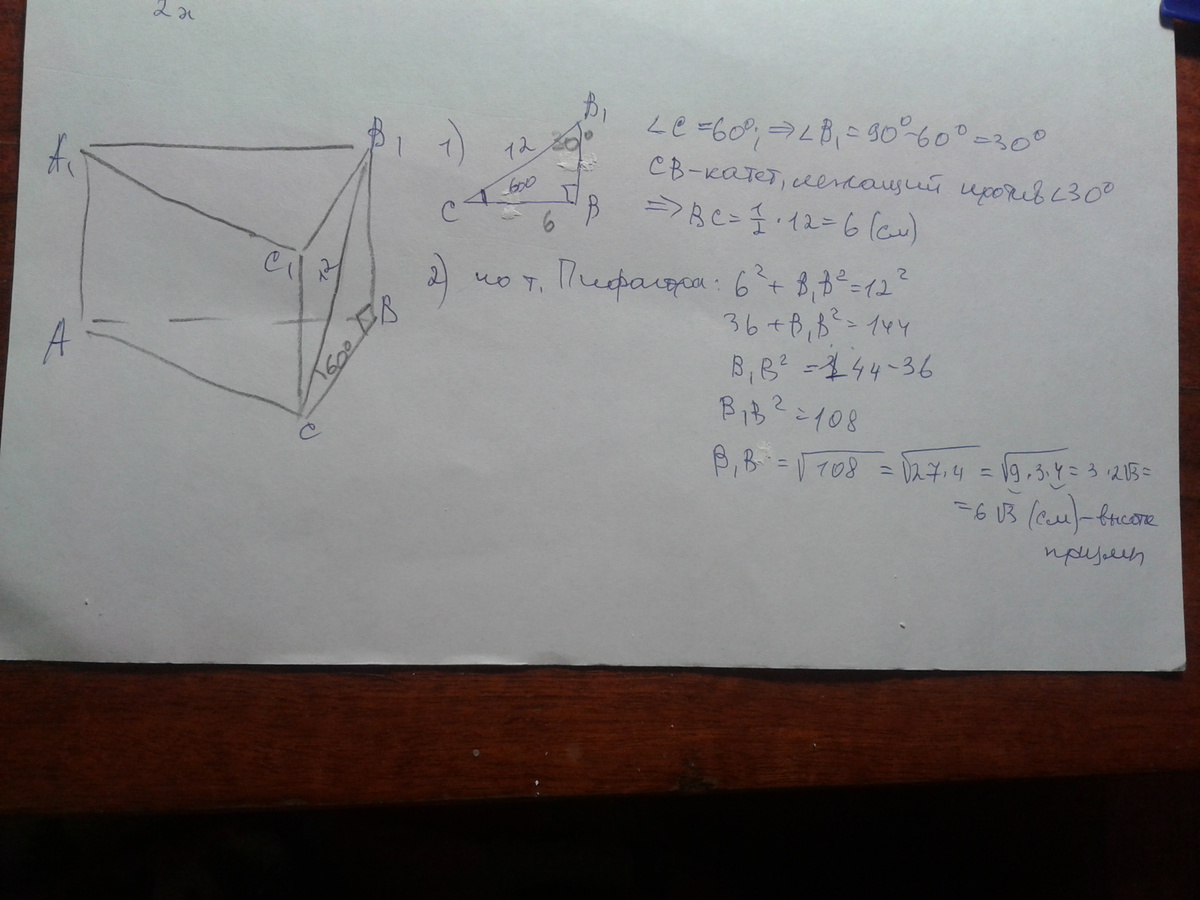 2х
A₁
B₁
C₁
12
A
B
60°
C
1)
B₁
12
30°
60°
C
B
6
∠C = 60°; ⇒ ∠B₁ = 90° - 60° = 30°
CB - катет, лежащий против ∠30°
⇒ BC = 1/2 · 12 = 6 (см)
2) по т. Пифагора: 6² + B₁B² = 12²
36 + B₁B² = 144
B₁B² = 144 - 36
B₁B² = 108
B₁B = √108 = √27·4 = √9·3·4 = 3·2√3 =
= 6√3 (см) - высота
призмы